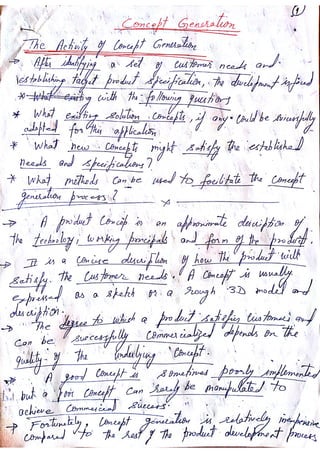 (1)
Concept Generation
The Activity of Concept Generation
→ After identifying a set of customer needs and
establishing target product specification, the development
* What existing with the following questions
* What existing solution concepts, if any could be successfully
adopted for this application
* What new concepts might satisfy the established
needs and specifications?
* What methods can be used to facilitate the concept
generation process?
→ A product concept is an approximate description of
the technology, working principals and form of the product.
→ It is a concise description of how the product will
satisfy the customer needs. A concept is usually
expressed as a sketch or a rough 3D model and
description.
→ The degree to which a product satisfies customers and
can be successfully commercialized depends on the
quality of the underlying concept.
→ A good concept is sometimes poorly implemented
but a poor concept can rarely be manipulated to
achieve commercial success.
→ Fortunately, concept generation is relatively inexpensive
compared to the rest of the product development process